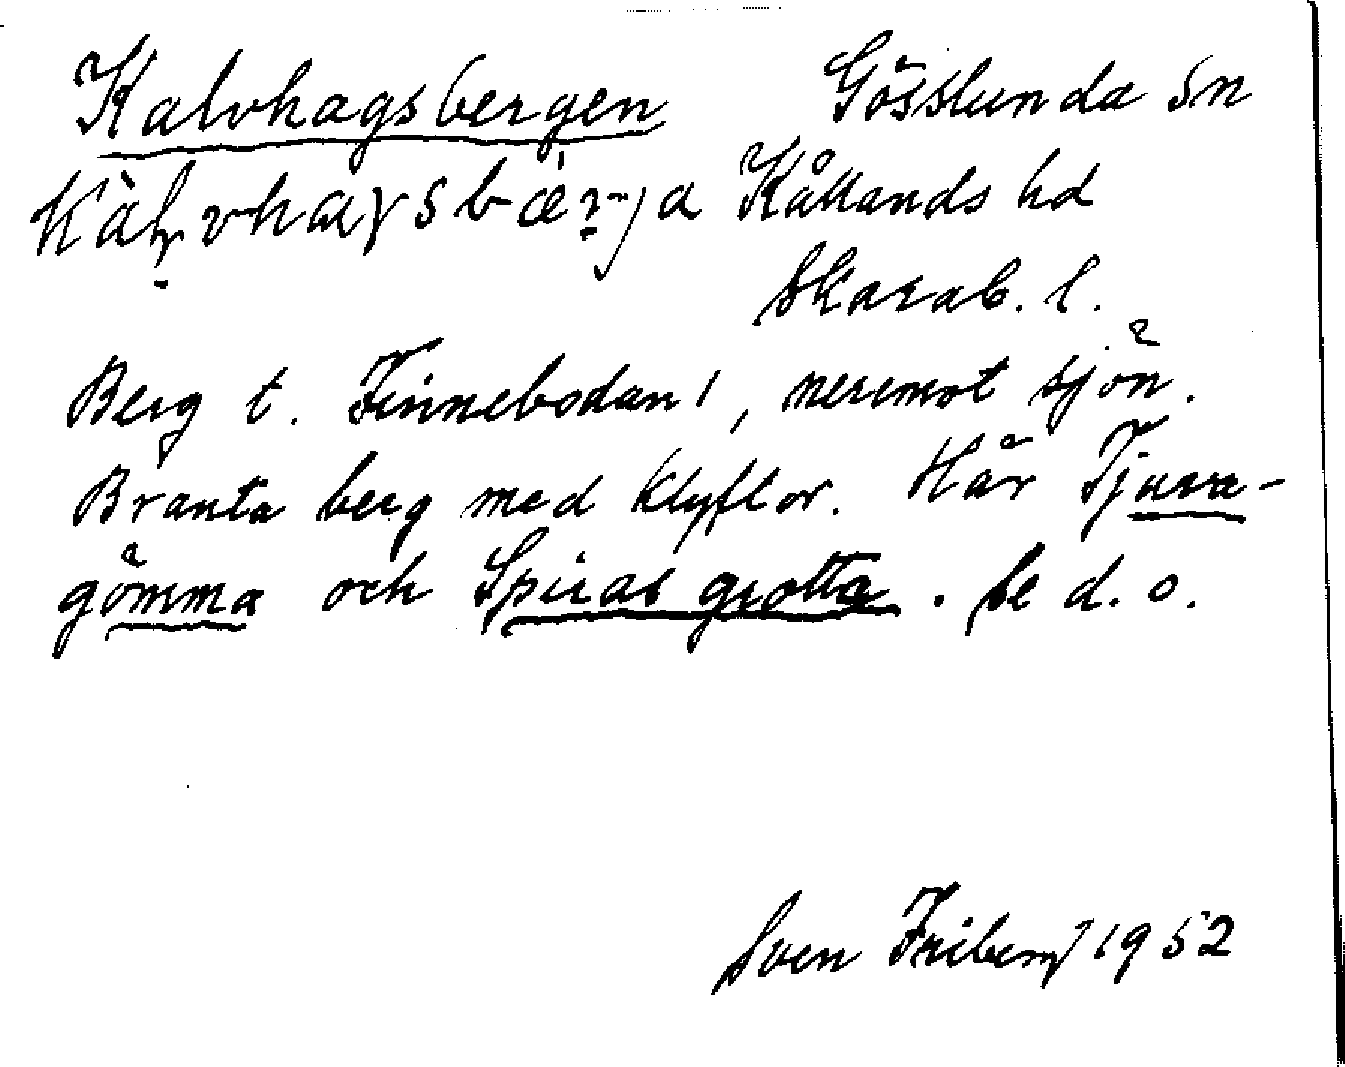 Kalvhagsbergen Gösslunda sn
Kållands hd
Skarab. l.
Berg t. Finnebodan 1, neremot sjön.
Branta berg med klyftor. Här Tjuva-
gömma och Spiras grotta. Se d. o.
Sven Friberg 1952